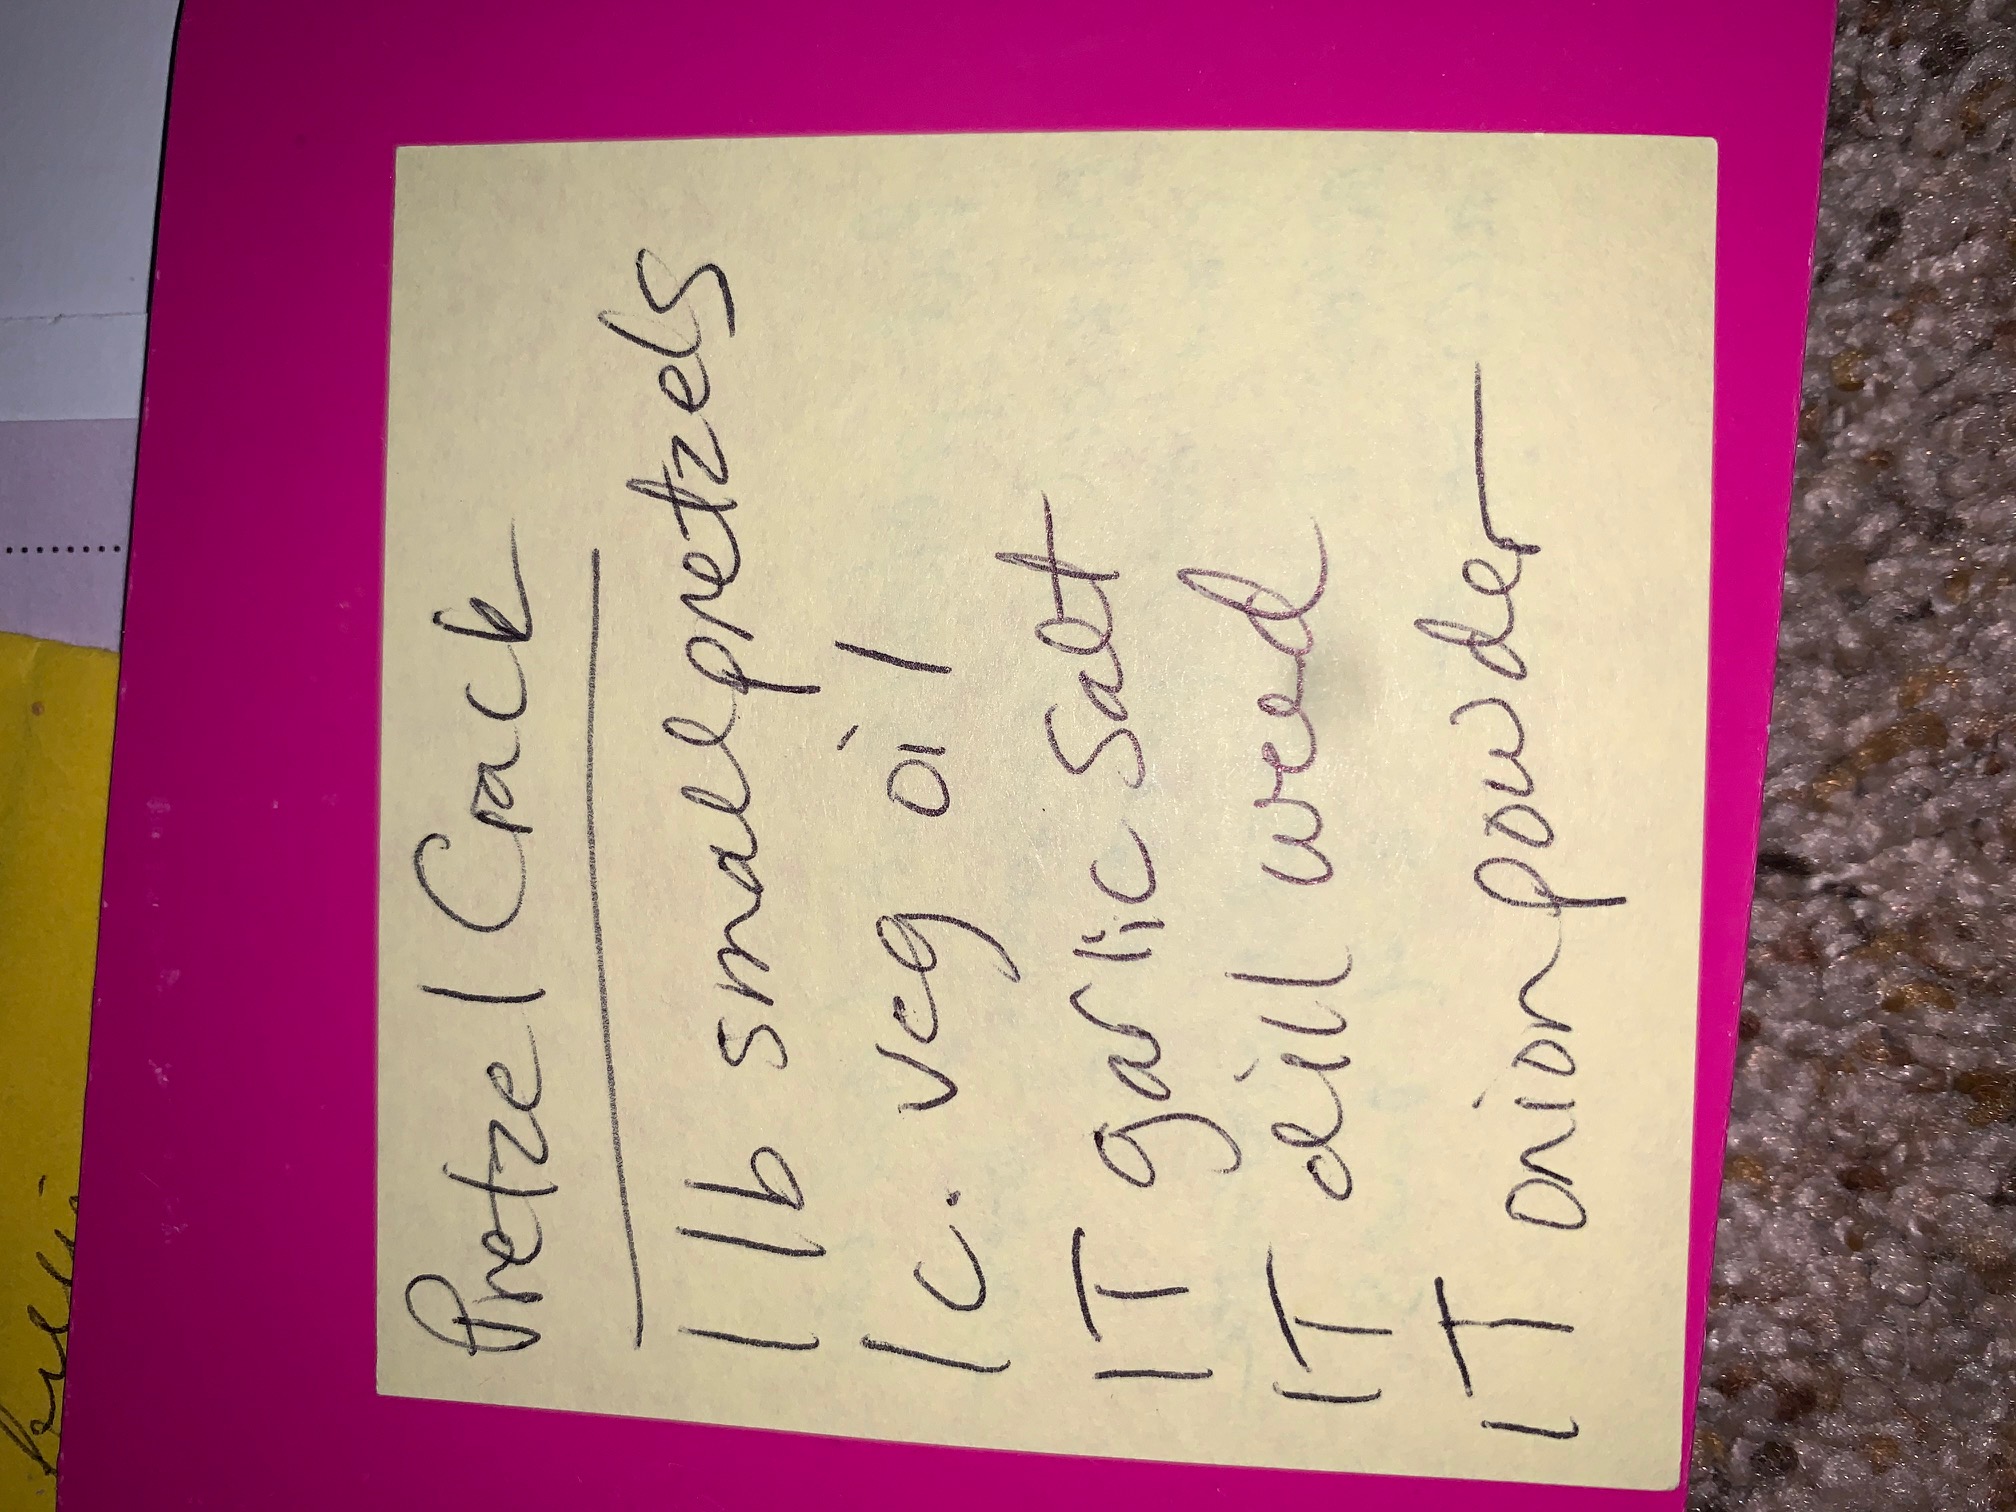 Pretzel Crack
1 lb small pretzels
1 c. veg oil
1T garlic salt
1T dill weed
1T onion powder